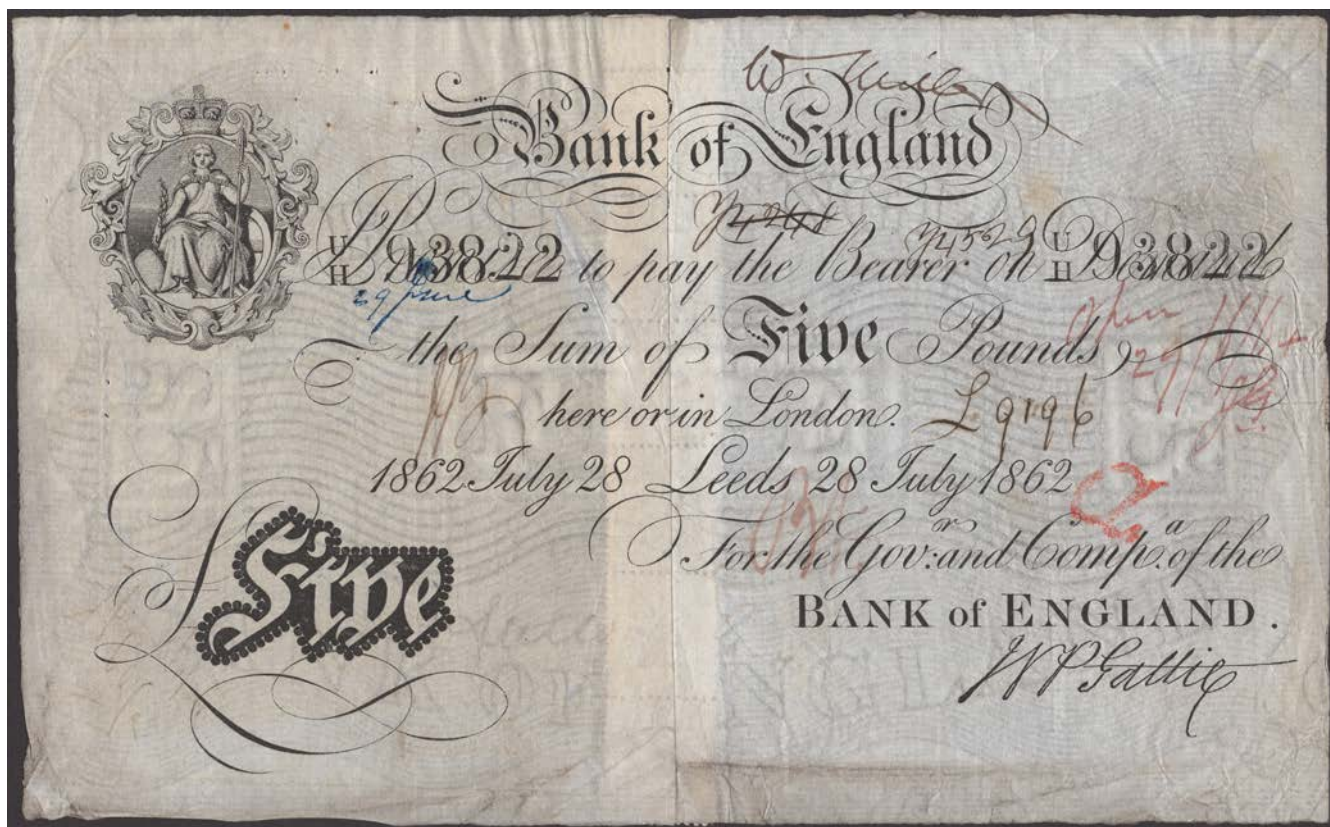 Bank of England
U/H 93822 I Promise to pay the Bearer on Demand U/H 93822
29 June
the Sum of Five Pounds,
here or in London. L 9196
1862 July 28 Leeds 28 July 1862
For the Gov.r and Comp.a of the
Five
BANK of ENGLAND.
W P Gattie